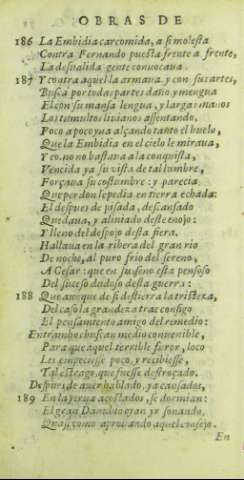 OBRAS DE
186 La Embidia carcomida, a si molesta
Contra Fernando puesta frente a frente,
La desualida gente conuocaua.
187 Y contra aquella armaua, y con sus artes,
Busca por todas partes daño y mengua
El con su mansa lengua, y largas manos
Los tumultos liuianos assentando,
Poco a poco yua alçando tanto el buelo,
Que la Embidia en el cielo le miraua,
Y como no bastaua a la conquista,
Vencida ya su vista de tal lumbre,
Forçaua su costumbre: y parecia
Que perdon le pedia en tierra echada:
El despues de pisada, descansado
Quedaua, y aliuiado deste enojo:
Y lleno del despojo desta fiera.
Hallaua en la ribera del gran rio
De noche, al puro frio del sereno,
A Cesar: que en su seno està pensoso
Del sucesso dudoso desta guerra:
188 Que aunque de si destierra la tristeza,
Del caso la grandeza trae consigo
El pensamiento amigo del remedio:
Entrambos buscan medio conuenible,
Para que aquel terrible furor, loco
Les empeciesse poco, y recibiesse,
Tal estrago, que fuesse destroçado.
Despues de auer hablado, ya cansados,
189 En la yerua acostados, se dormian:
El gran Danubio oyan yr sonando,
Quasi como aprouando aquel consejo.
En